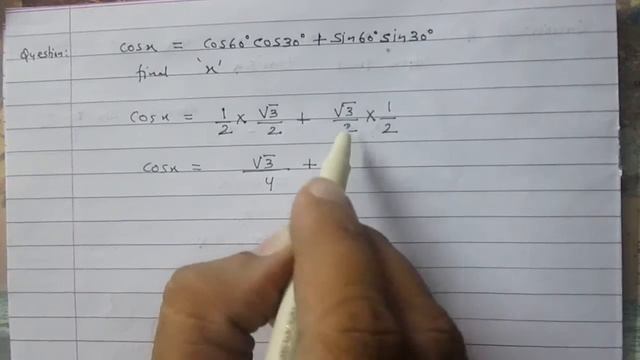 Question: cosx = cos60° cos30° + sin60° sin30°
final 'x'
cosx = 1/2 × √3/2 + √3/2 × 1/2
cosx = √3/4 +